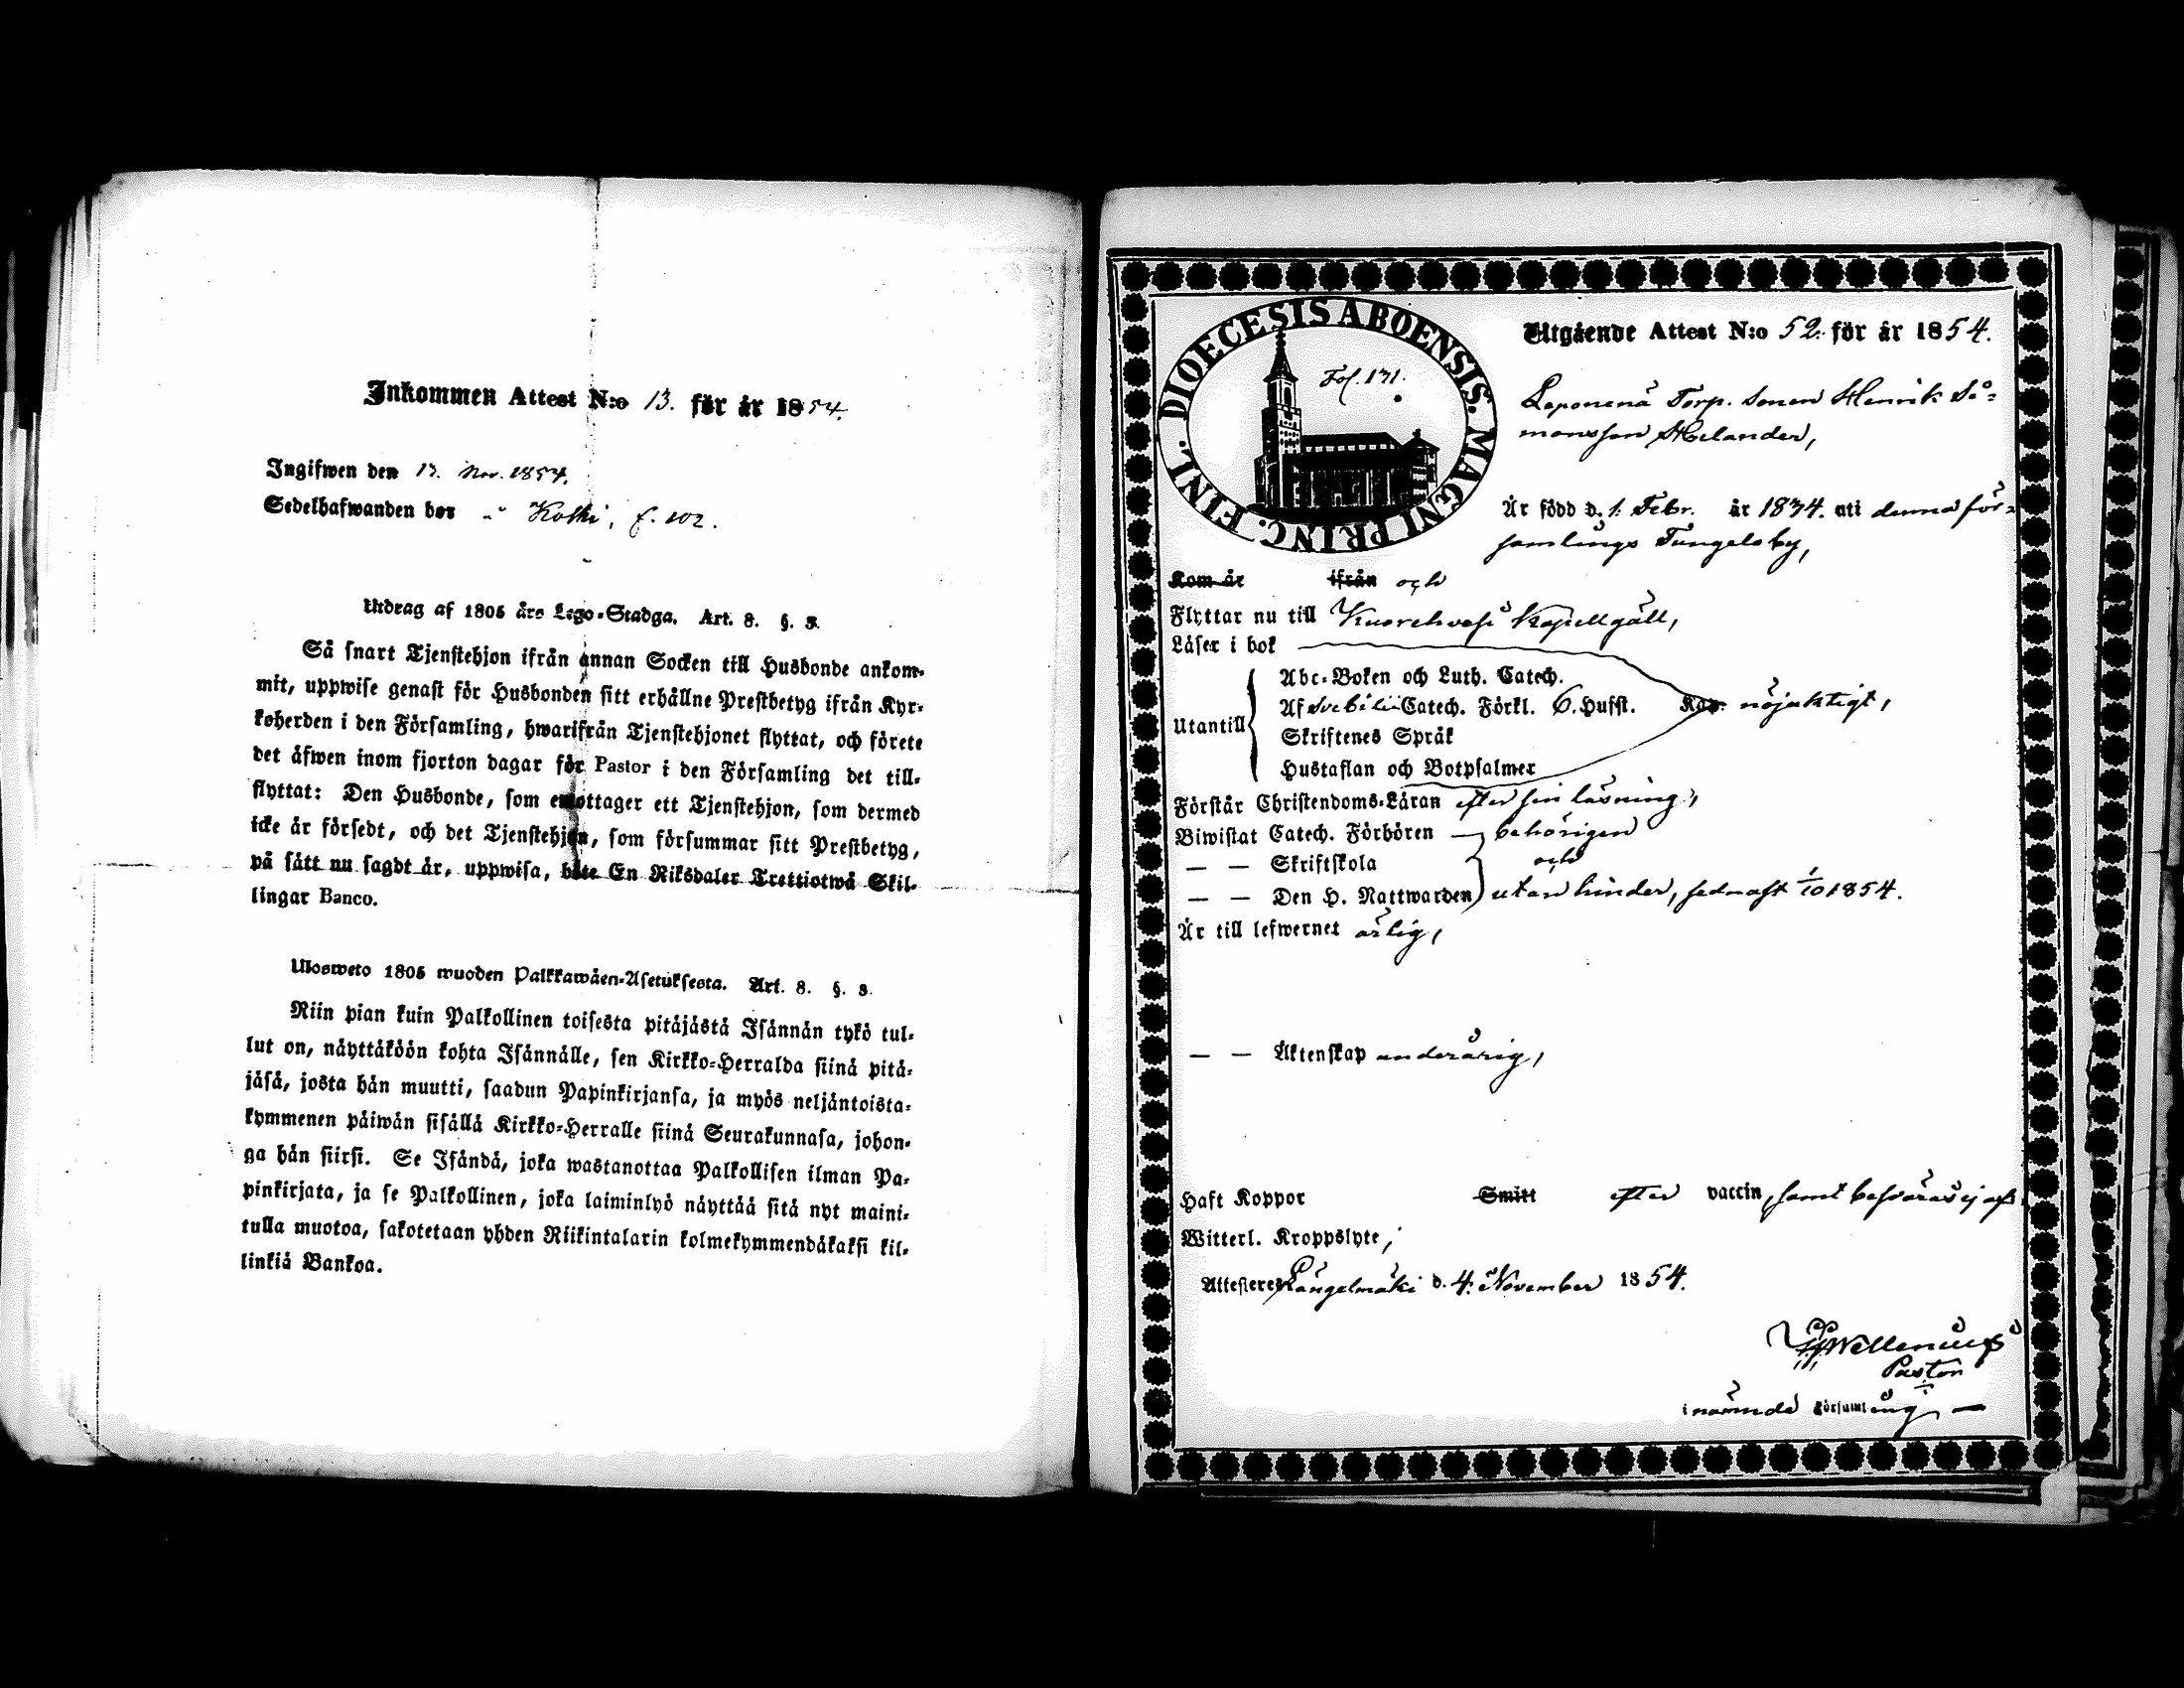 Inkommen Attest N:o 13. för år 1854.
Ingifwen den 13. Nov. 1854.
Sedelhafwanden bor å Koski, f. 102.
Utdrag af 1805 års Lego-Stadga. Art. 8. §. 3.
Så snart Tjenstehjon ifrån annan Socken till Husbonde ankom-
mit, uppwise genast för Husbonden sitt erhållne Prestbetyg ifrån Kyr-
koherden i den Församling, hwarifrån Tjenstehjonet flyttat, och förete
det äfwen inom fjorton dagar för Pastor i den Församling det till-
flyttat: Den Husbonde, som emottager ett Tjenstehjon, som dermed
icke är försedt, och det Tjenstehjon, som försummar sitt Prestbetyg,
på sätt nu sagdt är, uppwisa, böte En Riksdaler Trettiotwå Skil-
lingar Banco.
Ulosweto 1805 wuoden Palkkawäen-Asetuksesta. Art. 8. §. 3.
Niin pian kuin Palkollinen toisesta pitäjästä Isännän tykö tul-
lut on, näyttäköön kohta Isännälle, sen Kirkko-Herralda siinä pitä-
jäsä, josta hän muutti, saadun Papinkirjansa, ja myös neljäntoista-
kymmenen päiwän sisällä Kirkko-Herralle siinä Seurakunnasa, johon-
ga hän siirsi. Se Isändä, joka wastanottaa Palkollisen ilman Pa-
pinkirjata, ja se Palkollinen, joka laiminlyö näyttää sitä nyt maini-
tulla muotoa, sakotetaan yhden Riikintalarin kolmekymmendäkaksi kil-
linkiä Bankoa.
DIOECESIS ABOENSIS. MAGNI PRINC. FINL.
Fol. 171.
Utgående Attest N:o 52. för år 1854.
Leponenä Torp. Sonen Henrik Si-
monsson Helander,
Är född d. 1. Febr. år 1834. uti denna för-
samlings Tungelo by,
Kom år ifrån och
Flyttar nu till Kuorehvesi Kapellgäll,
Läser i bok
Utantill
Abc-Boken och Luth. Catech.
Af Svebilii Catech. Förkl. 6. Hufst. Kap. nöjaktigt,
Skriftenes Språk
Hustaflan och Botpsalmer
Förstår Christendoms-Läran efter sin läsning,
Biwistat Catech. Förhören behörigen
— — Skriftskola och
— — Den H. Nattwarden utan hinder, sednast 1/10 1854.
Är till lefwernet ärlig,
— — Äktenskap underårig,
Haft Koppor Smitt efter vaccin, samt besväras ej af
Witterl. Kroppslyte;
Attesteres Längelmäki d. 4. November 1854.
Wellenius
Pastor
i nämnde Församling